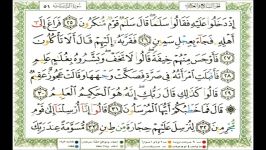 سُورَةُ الذَّارِيَاتِ ٥١
إِذْ دَخَلُوا عَلَيْهِ فَقَالُوا سَلَٰمًا قَالَ سَلَٰمٌ قَوْمٌ مُّنكَرُونَ ٢٥ فَرَاغَ إِلَىٰ
أَهْلِهِۦ فَجَآءَ بِعِجْلٍ سَمِينٍ ٢٦ فَقَرَّبَهُۥٓ إِلَيْهِمْ قَالَ أَلَا تَأْكُلُونَ
٢٧ فَأَوْجَسَ مِنْهُمْ خِيفَةً قَالُوا لَا تَخَفْ وَبَشَّرُوهُ بِغُلَٰمٍ عَلِيمٍ
٢٨ فَأَقْبَلَتِ ٱمْرَأَتُهُۥ فِى صَرَّةٍ فَصَكَّتْ وَجْهَهَا وَقَالَتْ عَجُوزٌ عَقِيمٌ
٢٩ قَالُوا كَذَٰلِكِ قَالَ رَبُّكِ إِنَّهُۥ هُوَ ٱلْحَكِيمُ ٱلْعَلِيمُ ٣٠
قَالَ فَمَا خَطْبُكُمْ أَيُّهَا ٱلْمُرْسَلُونَ ٣١ قَالُوٓا إِنَّآ أُرْسِلْنَآ إِلَىٰ قَوْمٍ
مُّجْرِمِينَ ٣٢ لِنُرْسِلَ عَلَيْهِمْ حِجَارَةً مِّن طِينٍ ٣٣ مُّسَوَّمَةً عِندَ رَبِّكَ